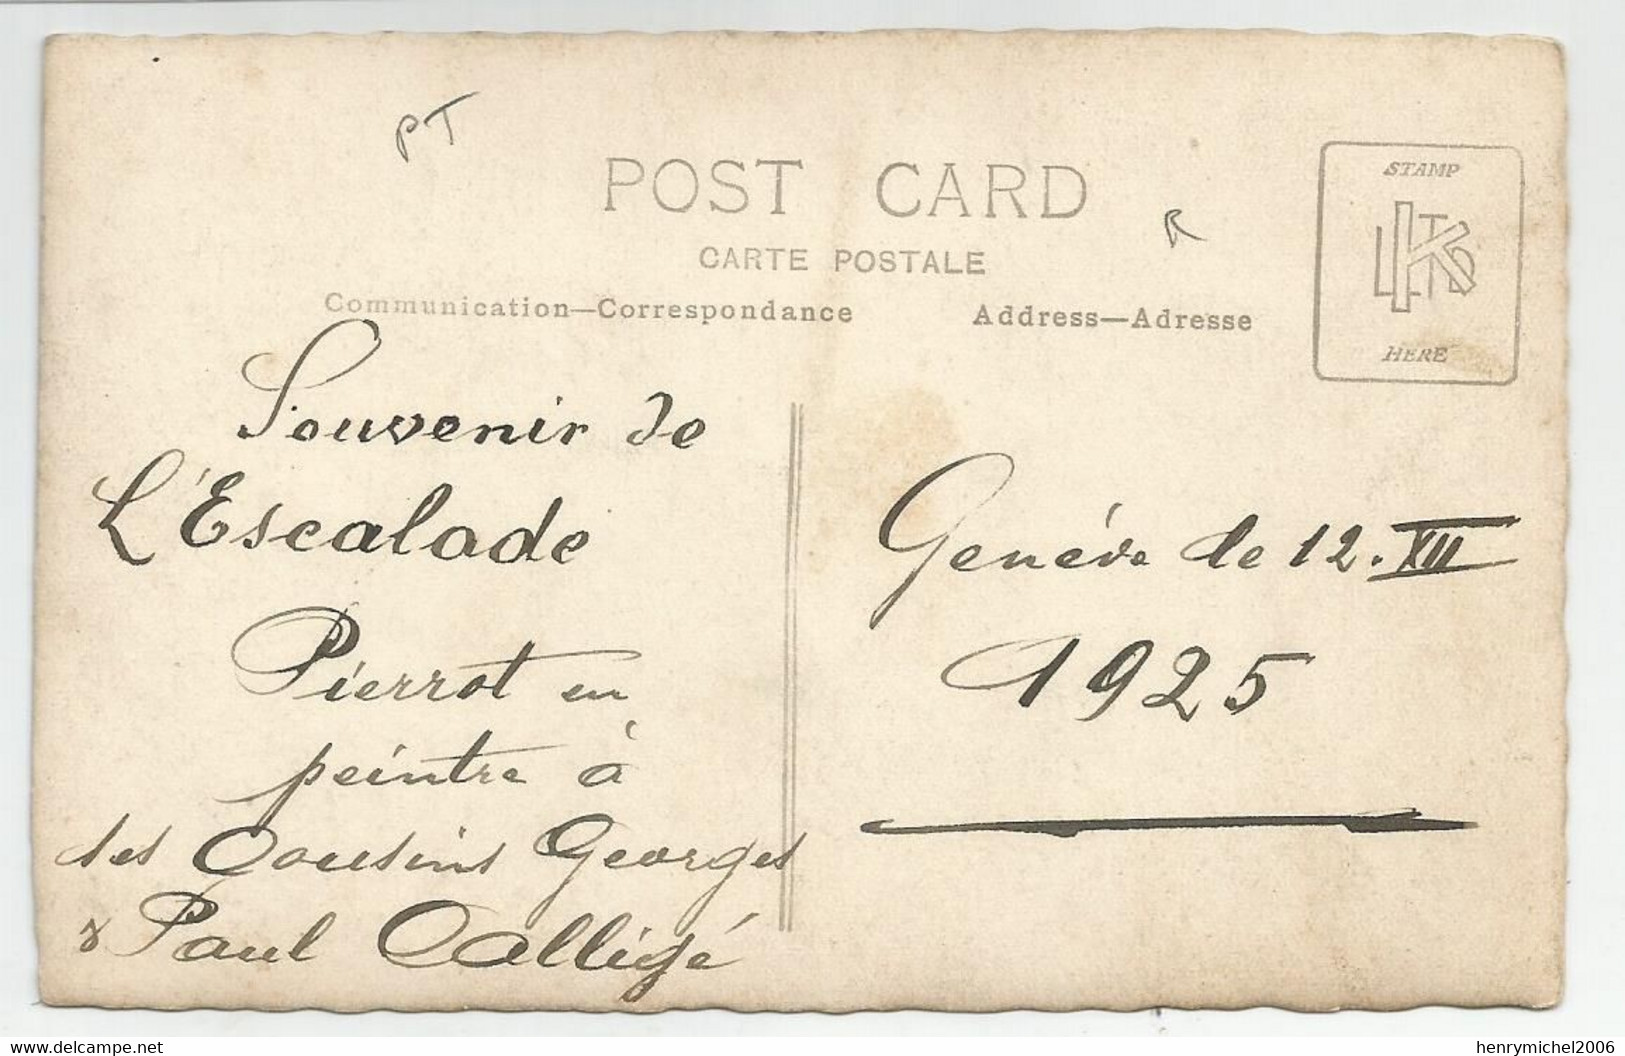 PT
POST CARD
R
CARTE POSTALE
Communication—Correspondance
Address—Adresse
STAMP
HERE
Souvenir de
L'Escalade
Pierrot en
peintre à
ses Cousins Georges
& Paul Calligé
Genéve de 12.XII
1925
delcampe.net
henrymichel2006